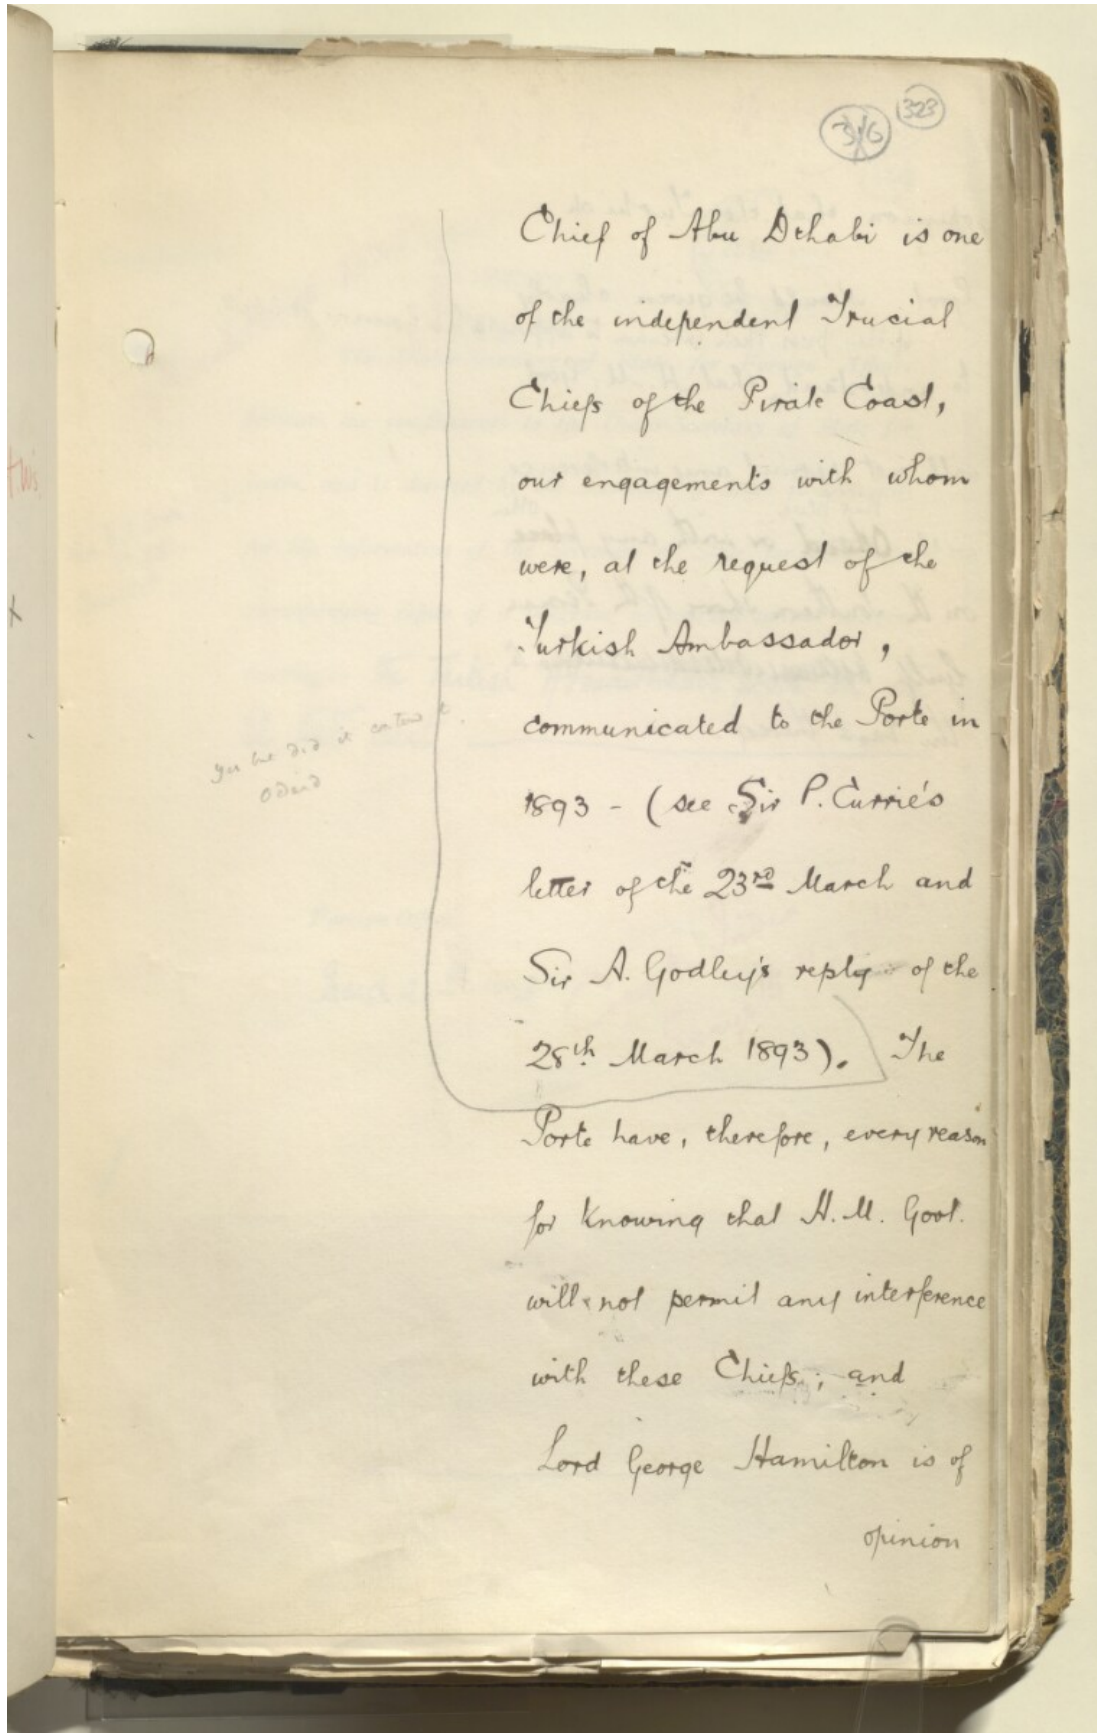 323
316
Chief of Abu Dthabi is one
of the independent Trucial
Chiefs of the Pirate Coast,
our engagements with whom
were, at the request of the
Turkish Ambassador,
communicated to the Porte in
1893 - (see Sir P. Currie's
letter of the 23rd March and
Sir A. Godley's reply of the
28th March 1893). The
Porte have, therefore, every reason
for knowing that H.M. Govt.
will not permit any interference
with these Chiefs; and
Lord George Hamilton is of
opinion
yes but did it
Odeid
x